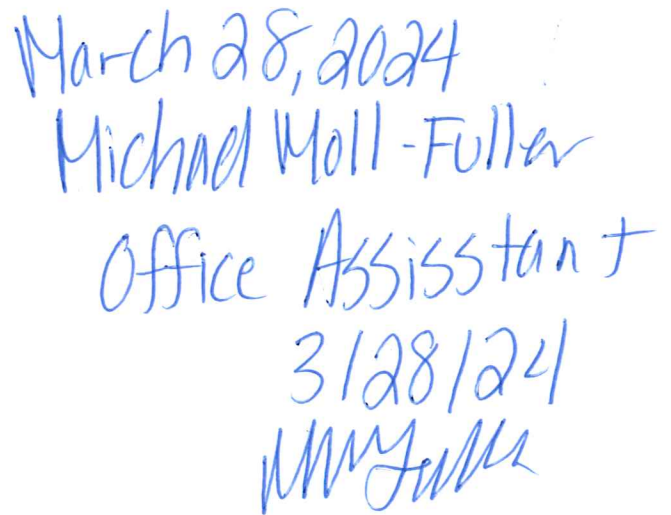 March 28, 2024
Michael Moll-Fuller
Office Assisstant
3/28/24